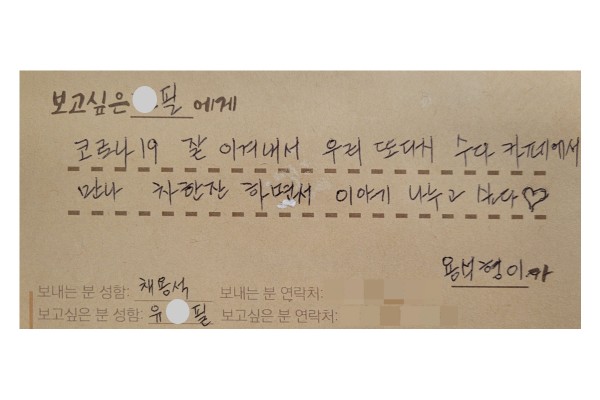 보고싶은 필 에게
코로나19 잘 이겨내서 우리 또다시 수다 카페에서
만나 차한잔 하면서 이야기 나누고 싶다♡
용석형이가
보내는 분 성함: 채용석 보내는 분 연락처:
보고싶은 분 성함: 유 필 보고싶은 분 연락처: